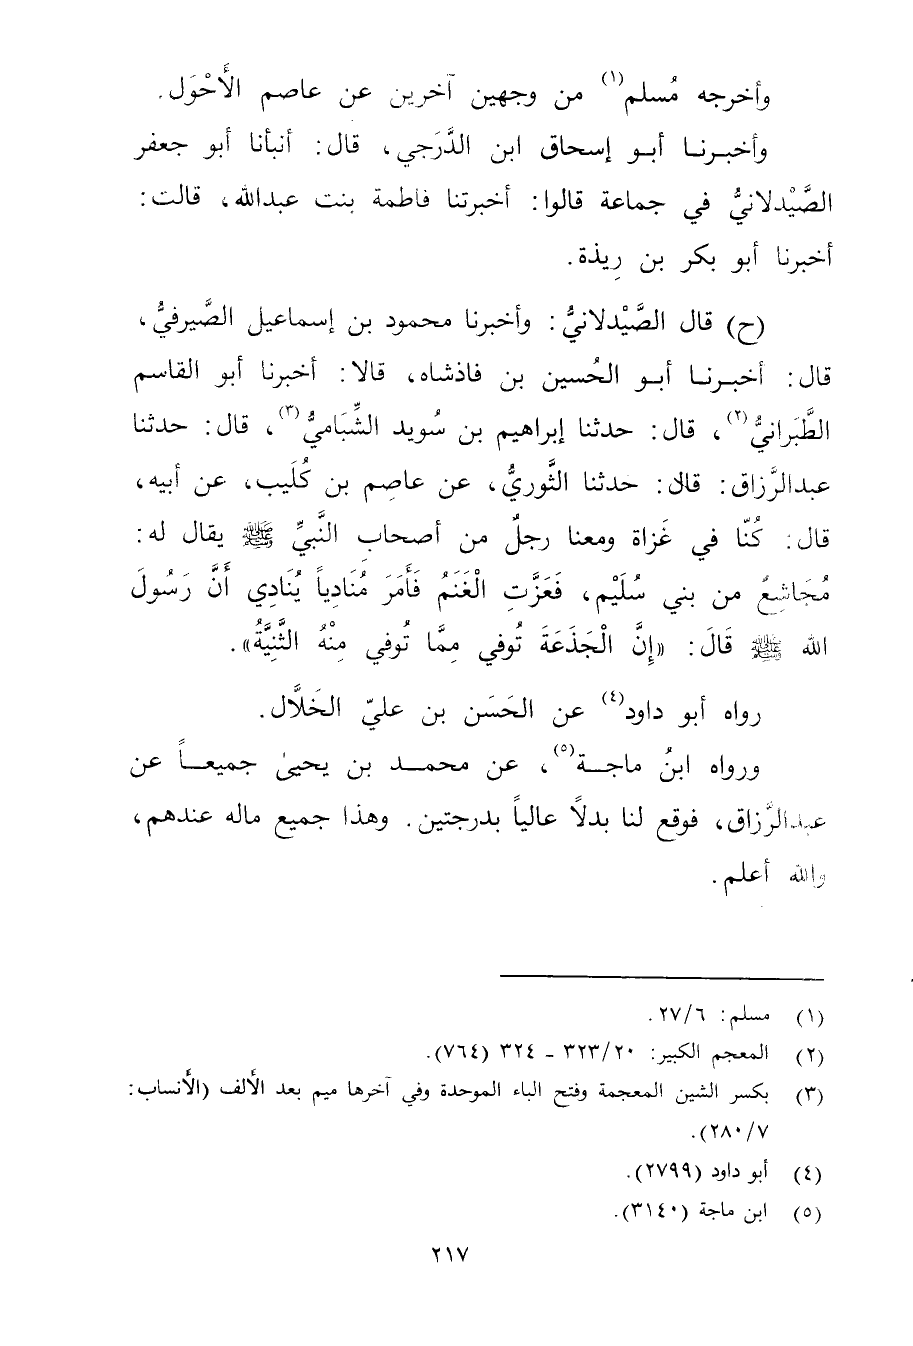 وأخرجه مُسلم(١) من وجهين آخرين عن عاصم الأَحْوَل.
وأخبرنا أبو إسحاق ابن الدَّرَجي، قال: أنبأنا أبو جعفر
الصَّيْدلانيُّ في جماعة قالوا: أخبرتنا فاطمة بنت عبدالله، قالت:
أخبرنا أبو بكر بن رِيذة.
(ح) قال الصَّيْدلانيُّ: وأخبرنا محمود بن إسماعيل الصَّيرفيُّ،
قال: أخبرنا أبو الحُسين بن فاذشاه، قالا: أخبرنا أبو القاسم
الطَّبَرانيُّ(٢)، قال: حدثنا إبراهيم بن سُويد الشِّبَاميُّ(٣)، قال: حدثنا
عبدالرَّزاق: قال: حدثنا الثَّوريُّ، عن عاصِم بن كُلَيب، عن أبيه،
قال: كُنّا في غَزاة ومعنا رجلٌ من أصحابِ النَّبيِّ ﷺ يقال له:
مُجَاشِعٌ من بني سُلَيْم، فَعَزَّتِ الْغَنَمُ فَأَمَرَ مُنَادِياً يُنَادِي أَنَّ رَسُولَ
الله ﷺ قَالَ: «إِنَّ الْجَذَعَةَ تُوفي مِمَّا تُوفي مِنْهُ الثَّنِيَّةُ».
رواه أبو داود(٤) عن الحَسَن بن عليّ الخَلَّال.
ورواه ابنُ ماجة(٥)، عن محمد بن يحيىٰ جميعاً عن
عبدالرَّزاق، فوقع لنا بدلاً عالياً بدرجتين. وهذا جميع ماله عندهم،
والله أعلم.
(١) مسلم: ٢٧/٦.
(٢) المعجم الكبير: ٣٢٣/٢٠ - ٣٢٤ (٧٦٤).
(٣) بكسر الشين المعجمة وفتح الباء الموحدة وفي آخرها ميم بعد الألف (الأنساب:
٢٨٠/٧).
(٤) أبو داود (٢٧٩٩).
(٥) ابن ماجة (٣١٤٠).
٢١٧